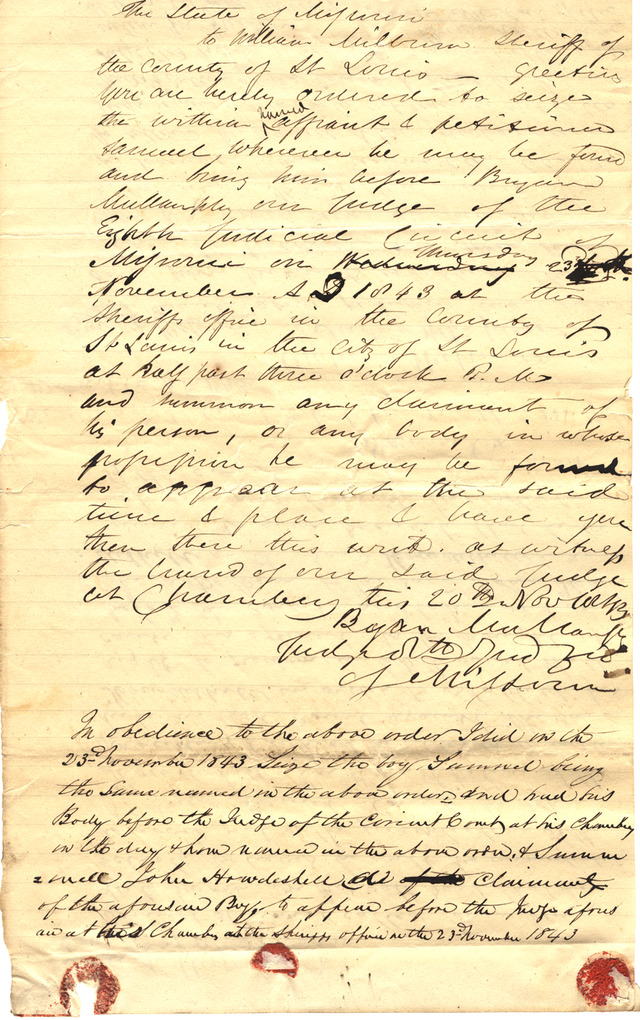 The State of Missouri
to William Milburn Sheriff of
the county of St Louis — greeting
you are hereby ordered to seize
the within named affiant & petitioner
Samuel wherever he may be found
and bring him before Bryan
Mullanphy our Judge of the
Eighth Judicial Circuit of
Missouri on Thursday 23
November A D 1843 at the
Sheriffs office in the County of
St Louis in the city of St Louis
at half past three o'clock P. M.
and summon any claimant of
his person, or any body in whose
possession he may be found
to appear at the said
time & place & have you
then there this writ. as witness
the hand of our said Judge
at Chambers this 20th Nov
Bryan Mullanphy
Judge 8th Jud
of Missouri
In obedience to the above order I did on the
23rd November 1843 Seize the boy Samuel being
the Same named in the above order, and had his
Body before the Judge of the Circuit Court at his Chambers
on the day & hour named in the above order, & Summ
=oned John Howdeshell Claimant
of the aforesaid Boy, to appear before the Judge afores
aid at his Chambers at the Sheriffs office on the 23rd November 1843